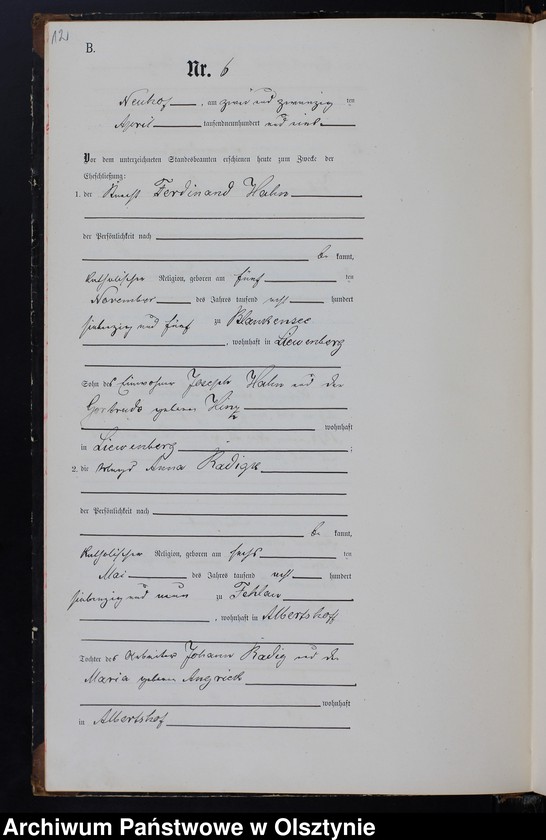 12
B.
Nr. 6
Neuhof, am zwei und zwanzig ten
April tausendneunhundert und
Vor dem unterzeichneten Standesbeamten erschienen heute zum Zwecke der
Eheschließung:
1. der Knecht Ferdinand Hahn
der Persönlichkeit nach
be kannt,
katholischer Religion, geboren am fünf ten
November des Jahres tausend acht hundert
siebenzig und fünf zu Blankensee
, wohnhaft in Liewenberg
Sohn des Einwohner Joseph Hahn und der
Gertrude geborne
wohnhaft
in Liewenberg ;
2. die Magd Anna Radigk
der Persönlichkeit nach
be kannt,
katholischer Religion, geboren am sechs ten
Mai des Jahres tausend acht hundert
siebenzig und neun zu Fehlau
, wohnhaft in Albertshof
Tochter des Arbeiter Johann Radig und der
Maria geborne Angrick
wohnhaft
in Albertshof
Archiwum Państwowe w Olsztynie